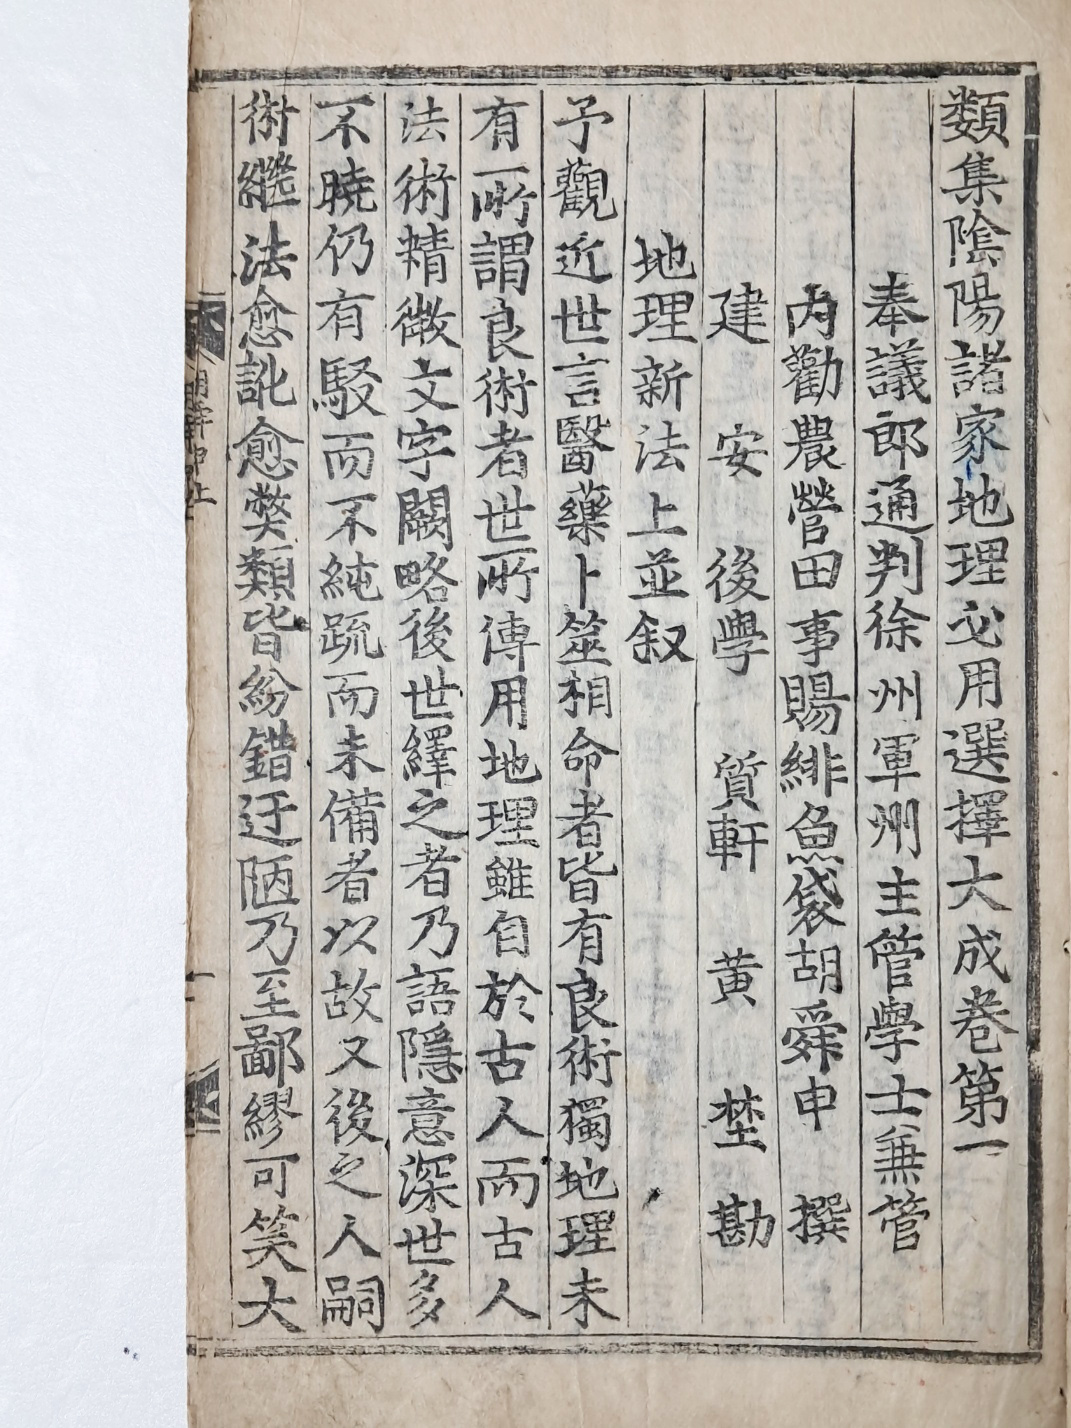 類集陰陽諸家地理必用選擇大成卷第一
奉議郎通判徐州軍州主管學士兼管
内勸農營田事賜緋魚袋胡舜申 撰
建安 後學 質軒 黄 埜 勘
地理新法上並叙
予觀近世言醫藥卜筮相命者皆有良術獨地理未
有所謂良術者世所傳用地理雖自於古人而古人
法術精微文字闕略後世繹之者乃語隱意深世多
不曉仍有駁而不純䟽而未備者以故又後之人嗣
術繼法愈訛愈獘類皆紛錯迂陋乃至鄙繆可笑大